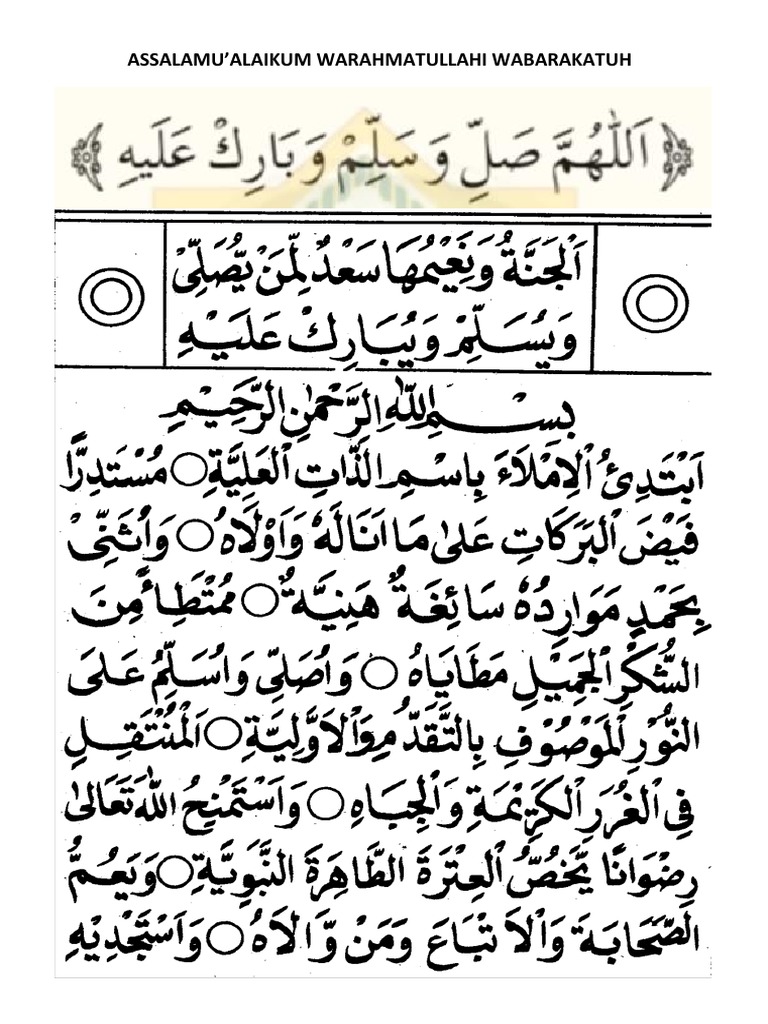 ASSALAMU’ALAIKUM WARAHMATULLAHI WABARAKATUH
﴿ اَللّٰهُمَّ صَلِّ وَ سَلِّمْ وَ بَارِكْ عَلَيْهِ ﴾
اَلْجَنَّةُ وَنَعِيْمُهَا سَعْدٌ لِّمَنْ يُّصَلِّيْ
وَيُسَلِّمْ وَيُبَارِكْ عَلَيْهِ
بِسْمِ اللّٰهِ الرَّحْمٰنِ الرَّحِيْمِ
اَبْتَدِئُ الْاِمْلَاءَ بِاسْمِ الذَّاتِ الْعَلِيَّةِ ○ مُسْتَدِرًّا
فَيْضَ الْبَرَكَاتِ عَلىٰ مَا اَنَالَهٗ وَاَوْلَاهُ ○ وَاُثَنِّىْ
بِحَمْدٍ مَوَارِدُهٗ سَائِغَةٌ هَنِيَّةٌ ○ مُمْتَطِأً مِنَ
الشُّكْرِ الْجَمِيْلِ مَطَايَاهُ ○ وَاُصَلِّيْ وَاُسَلِّمُ عَلَى
النُّوْرِ الْمَوْصُوْفِ بِالتَّقَدُّمِ وَالْاَوَّلِيَّةِ ○ اَلْمُنْتَقِلِ
فِي الْغُرَرِ الْكَرِيْمَةِ وَالْجِبَاهِ ○ وَاَسْتَمْنِحُ اللّٰهَ تَعَالىٰ
رِضْوَانًا يَّخُصُّ الْعِتْرَةَ الطَّاهِرَةَ النَّبَوِيَّةَ ○ وَيَعُمُّ
الصَّحَابَةَ وَالْاَتْبَاعَ وَمَنْ وَّالَاهُ ○ وَاَسْتَجْدِيْهِ